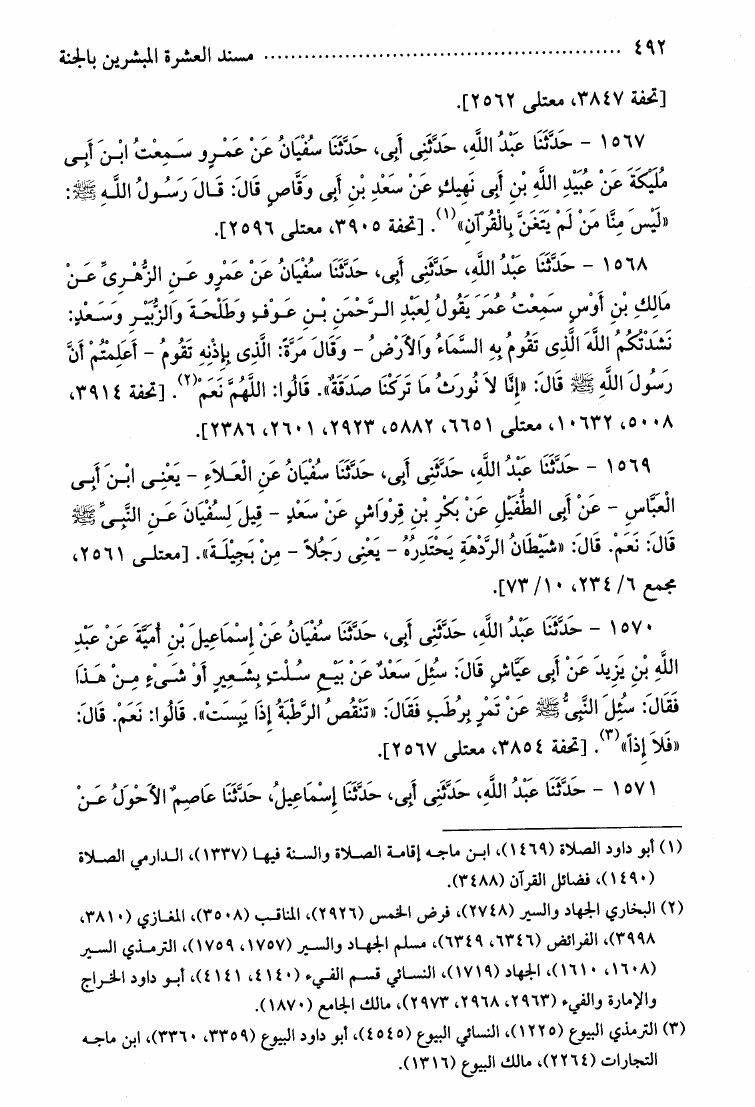 ٤٩٢ ........................................................ مسند العشرة المبشرين بالجنة
[تحفة ٣٨٤٧، معتلى ٢٥٦٢].
١٥٦٧ - حَدَّثَنَا عَبْدُ اللَّهِ، حَدَّثَنِى أَبِى، حَدَّثَنَا سُفْيَانُ عَنْ عَمْرٍو سَمِعْتُ ابْنَ أَبِى
مُلَيْكَةَ عَنْ عُبَيْدِ اللَّهِ بْنِ أَبِى نَهِيكٍ عَنْ سَعْدِ بْنِ أَبِى وَقَّاصٍ قَالَ: قَالَ رَسُولُ اللَّهِ ﷺ:
«لَيْسَ مِنَّا مَنْ لَمْ يَتَغَنَّ بِالْقُرْآنِ»(١). [تحفة ٣٩٠٥، معتلى ٢٥٩٦].
١٥٦٨ - حَدَّثَنَا عَبْدُ اللَّهِ، حَدَّثَنِى أَبِى، حَدَّثَنَا سُفْيَانُ عَنْ عَمْرٍو عَنِ الزُّهْرِىِّ عَنْ
مَالِكِ بْنِ أَوْسٍ سَمِعْتُ عُمَرَ يَقُولُ لِعَبْدِ الرَّحْمَنِ بْنِ عَوْفٍ وَطَلْحَةَ وَالزُّبَيْرِ وَسَعْدٍ:
نَشَدْتُكُمُ اللَّهَ الَّذِى تَقُومُ بِهِ السَّمَاءُ وَالأَرْضُ - وَقَالَ مَرَّةً: الَّذِى بِإِذْنِهِ تَقُومُ - أَعَلِمْتُمْ أَنَّ
رَسُولَ اللَّهِ ﷺ قَالَ: «إِنَّا لاَ نُورَثُ مَا تَرَكْنَا صَدَقَةٌ». قَالُوا: اللَّهُمَّ نَعَمْ(٢). [تحفة ٣٩١٤،
٥٠٠٨، ١٠٦٣٢، معتلى ٦٦٥١، ٥٨٨٢، ٢٩٢٣، ٢٦٠١، ٢٣٨٦].
١٥٦٩ - حَدَّثَنَا عَبْدُ اللَّهِ، حَدَّثَنِى أَبِى، حَدَّثَنَا سُفْيَانُ عَنِ الْعَلاَءِ - يَعْنِى ابْنَ أَبِى
الْعَبَّاسِ - عَنْ أَبِى الطُّفَيْلِ عَنْ بَكْرِ بْنِ قِرْوَاشٍ عَنْ سَعْدٍ - قِيلَ لِسُفْيَانَ عَنِ النَّبِىِّ ﷺ
قَالَ: نَعَمْ. قَالَ: «شَيْطَانُ الرَّدْهَةِ يَحْتَدِرُهُ - يَعْنِى رَجُلاً - مِنْ بَجِيلَةَ». [معتلى ٢٥٦١،
مجمع ٦/ ٢٣٤، ١٠/ ٧٣].
١٥٧٠ - حَدَّثَنَا عَبْدُ اللَّهِ، حَدَّثَنِى أَبِى، حَدَّثَنَا سُفْيَانُ عَنْ إِسْمَاعِيلَ بْنِ أُمَيَّةَ عَنْ عَبْدِ
اللَّهِ بْنِ يَزِيدَ عَنْ أَبِى عَيَّاشٍ قَالَ: سُئِلَ سَعْدٌ عَنْ بَيْعِ سُلْتٍ بِشَعِيرٍ أَوْ شَىْءٍ مِنْ هَذَا
فَقَالَ: سُئِلَ النَّبِىُّ ﷺ عَنْ تَمْرٍ بِرُطَبٍ فَقَالَ: «تَنْقُصُ الرَّطْبَةُ إِذَا يَبِسَتْ». قَالُوا: نَعَمْ. قَالَ:
«فَلاَ إِذاً»(٣). [تحفة ٣٨٥٤، معتلى ٢٥٦٧].
١٥٧١ - حَدَّثَنَا عَبْدُ اللَّهِ، حَدَّثَنِى أَبِى، حَدَّثَنَا إِسْمَاعِيلُ، حَدَّثَنَا عَاصِمٌ الأَحْوَلُ عَنْ
(١) أبو داود الصلاة (١٤٦٩)، ابن ماجه إقامة الصلاة والسنة فيها (١٣٣٧)، الدارمي الصلاة
(١٤٩٠)، فضائل القرآن (٣٤٨٨).
(٢) البخاري الجهاد والسير (٢٧٤٨)، فرض الخمس (٢٩٢٦)، المناقب (٣٥٠٨)، المغازي (٣٨١٠،
٣٩٩٨)، الفرائض (٦٣٤٦، ٦٣٤٩)، مسلم الجهاد والسير (١٧٥٧، ١٧٥٩)، الترمذي السير
(١٦٠٨، ١٦١٠)، الجهاد (١٧١٩)، النسائي قسم الفيء (٤١٤٠، ٤١٤١)، أبو داود الخراج
والإمارة والفيء (٢٩٦٣، ٢٩٦٨، ٢٩٧٣)، مالك الجامع (١٨٧٠).
(٣) الترمذي البيوع (١٢٢٥)، النسائي البيوع (٤٥٤٥)، أبو داود البيوع (٣٣٥٩، ٣٣٦٠)، ابن ماجه
التجارات (٢٢٦٤)، مالك البيوع (١٣١٦).